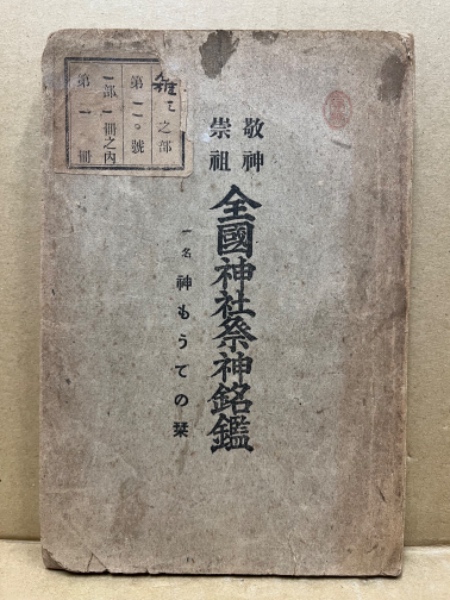 敬神
崇祖
全國神社祭神銘鑑
一名 神もうでの栞
雜之部
第一一〇號
一部一冊之內
第一冊